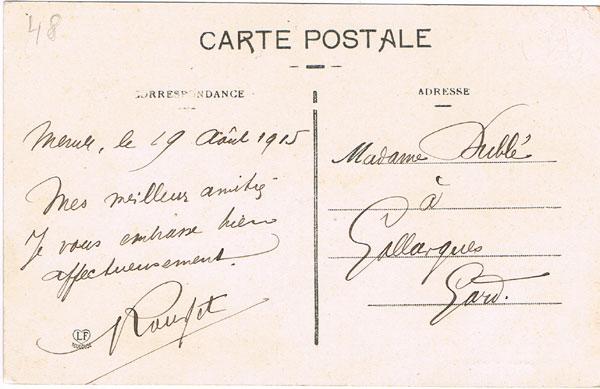 48
CARTE POSTALE
CORRESPONDANCE
ADRESSE
le 29 Août 1915
Mes meilleurs amitiés
Je vous embrasse bien
affectueusement.
Madame Dublé
à
Gallargues
Gard.
LF